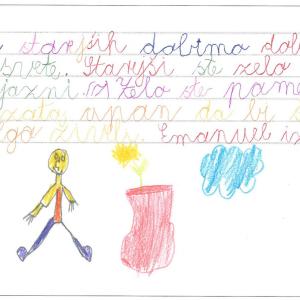 starjših dobimo dob
svete. Starjši ste zelo
jazni. Zelo ste pame
zato upan da bi s
ga živeli. Emanuel iz